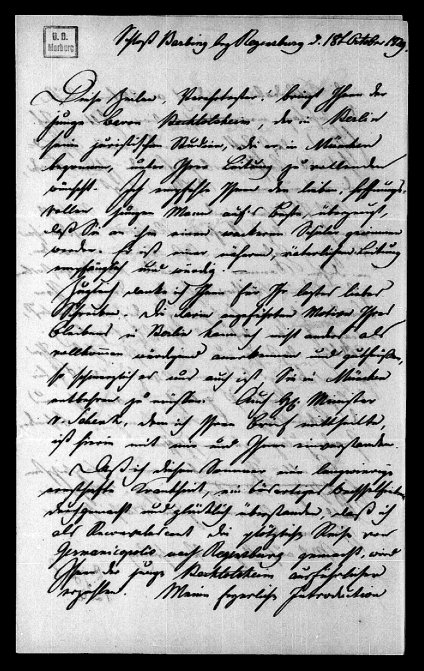 U. B.
Marburg
Schloß Barbing bey Regensburg d. 18t October 1829.
Diese Zeilen, Verehrtester, bringt Ihnen der
junge Baron Bechtolsheim, der in Berlin
seine juristischen Studien, die er in München
begonnen, unter Ihrer Leitung zu vollenden
wünscht. Ich empfehle Ihnen den lieben hoffnungs-
vollen jungen Mann aufs Beste, überzeugt,
daß Sie an ihm einen wackern Schüler gewinnen
werden. Er ist einer nähern, väterlichen Leitung
empfänglich und würdig. —
Zugleich danke ich Ihnen für Ihr letztes liebes
Schreiben. Die darin angeführten Motive Ihres
Bleibens in Berlin kann ich nicht anders als
vollkommen würdigend anerkennen und gutheißen,
so schmerzlich es uns auch ist, Sie in München
entbehren zu müssen. Auch Hr. Minister
v. Schenk, dem ich Ihren Brief mittheilte,
ist hierin mit mir und Ihnen einverstanden.
Daß ich diesen Sommer ein langwierige
ernsthafte Krankheit, ein bösartiges
durchgemacht und glücklich überstanden, daß ich
als Reconvalescent die plötzliche Reise von
nach Regensburg gemacht, wird
Ihnen der junge Bechtolsheim ausführlicher
erzählen. Meine Introduction